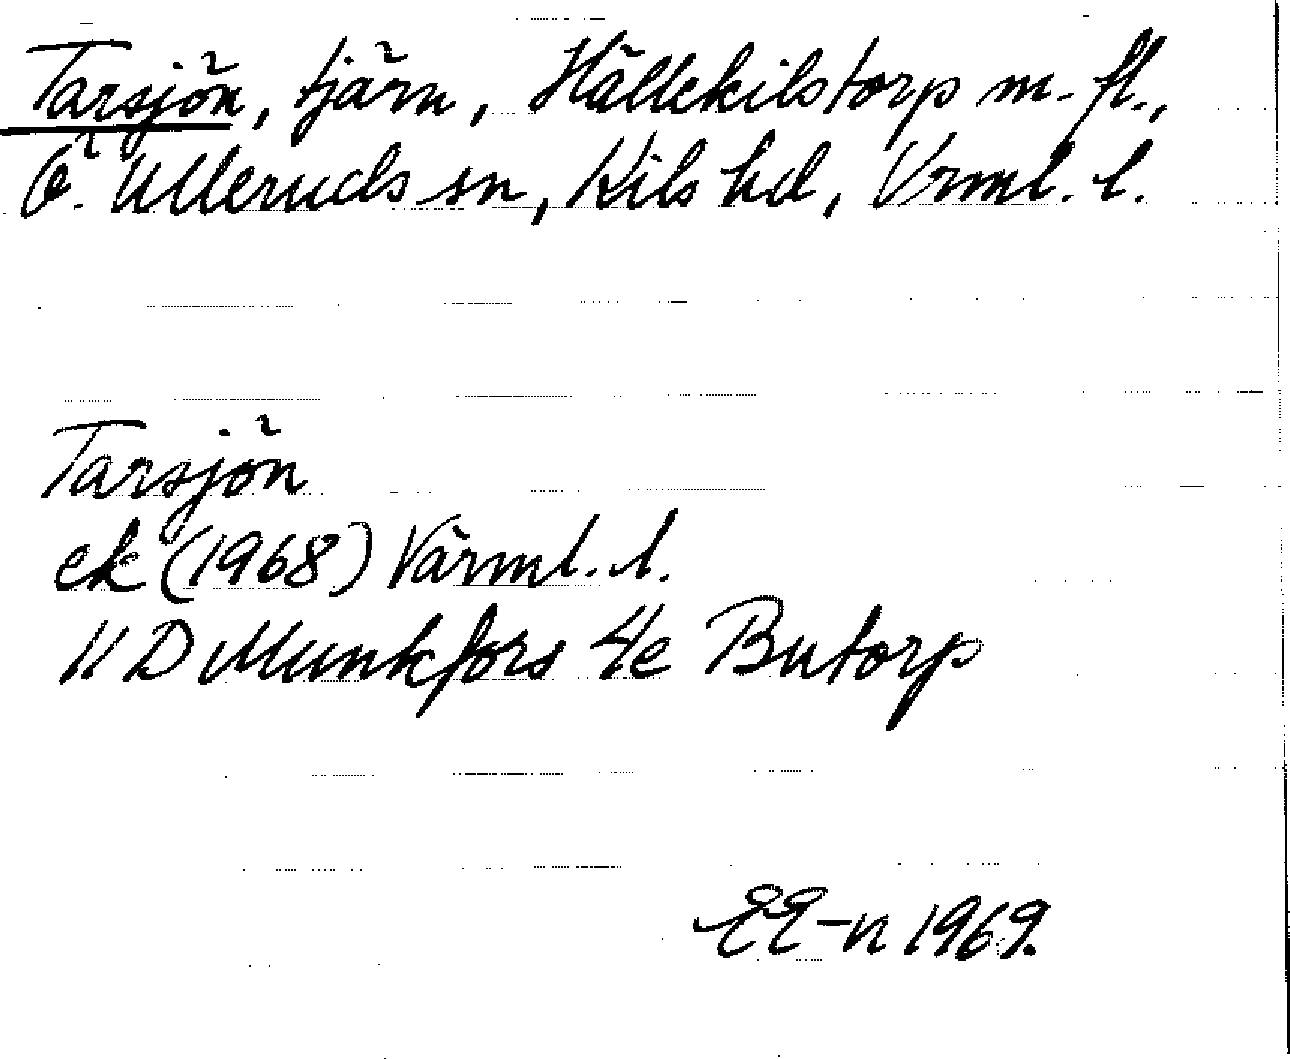 Tarsjön, tjärn, Hällekilstorp m. fl.,
Ö. Ulleruds sn, Kils hd, Vrml. l.
Tarsjön
ek (1968) Värml. l.
11 D Munkfors 4e Butorp
EE-n 1969.